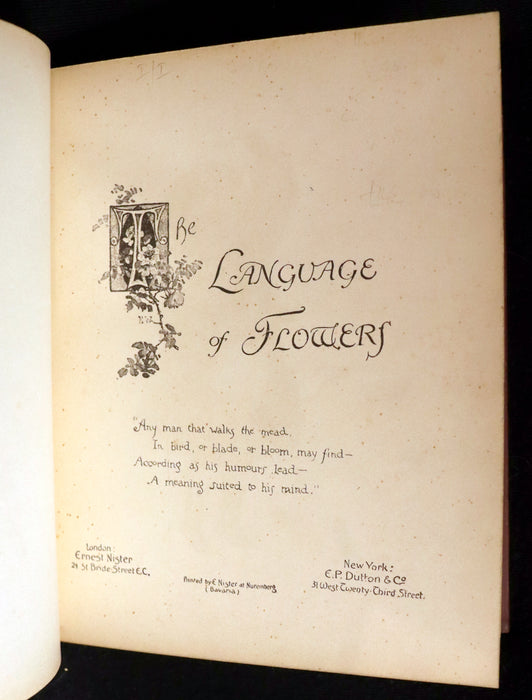 The
Language
of Flowers
"Any man that walks the mead,
In bird, or blade, or bloom, may find—
According as his humours lead—
A meaning suited to his mind."
London:
Ernest Nister
24 St Bride Street E.C.
Printed by E. Nister at Nuremberg
(Bavaria)
New York:
E.P. Dutton & Co
31 West Twenty-Third Street.